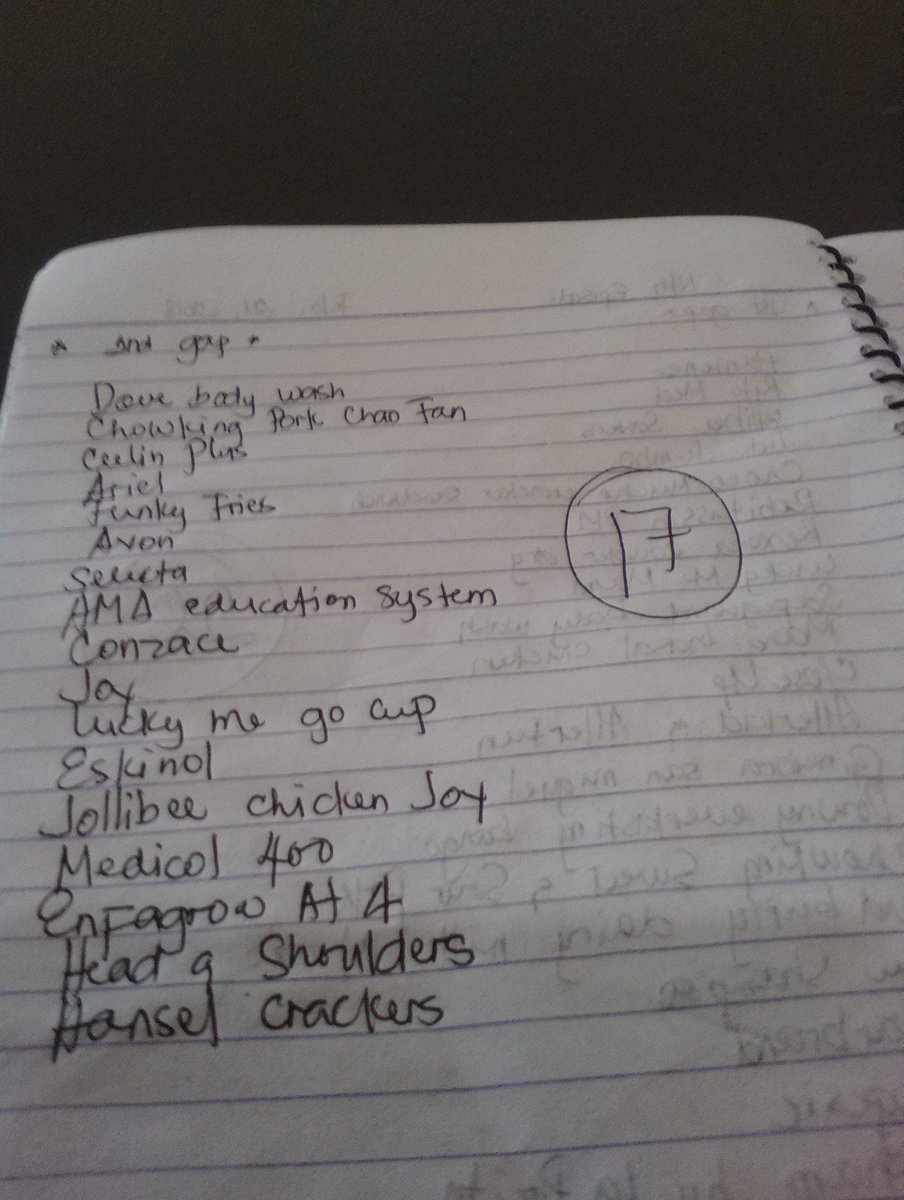 * 2nd gap *
Dove body wash
Chowking Pork Chao Fan
Ceelin Plus
Ariel
Funky Fries
Avon
Selecta
AMA education system
Conzace
Joy
Lucky me go cup
Eskinol
Jollibee chicken Joy
Medicol 400
Enfagrow A+ 4
Head & Shoulders
Hansel crackers
17